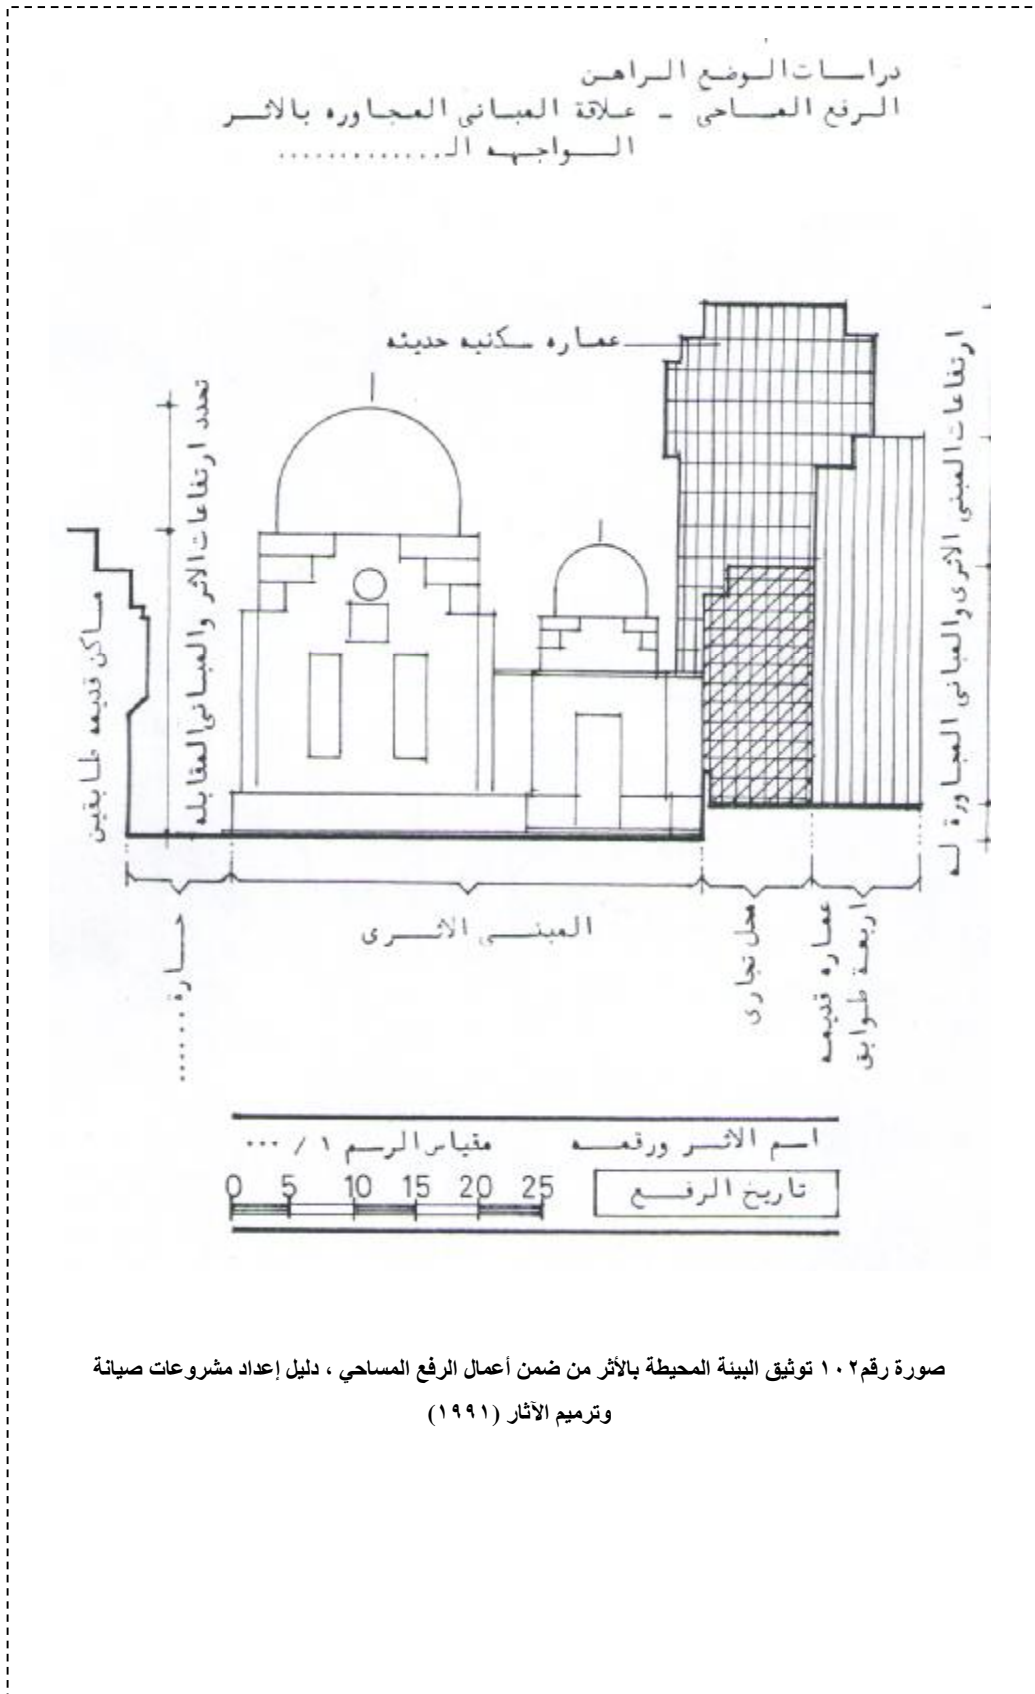 دراسات الوضع الراهن
الرفع المساحى - علاقة المبانى المجاوره بالاثر
الواجهه الـ.............
عماره سكنيه حديثه
ارتفاعات المبنى الاثرى والمبانى المجاورة له
تحدد ارتفاعات الاثر والمبانى المقابله
مساكن قديمه طابقين
حارة ......
المبنى الاثرى
محل تجارى
عماره قديمه
اربعة طوابق
اسم الاثر ورقمه
مقياس الرسم ١ / ...
تاريخ الرفع
0 5 10 15 20 25
صورة رقم١٠٢ توثيق البيئة المحيطة بالأثر من ضمن أعمال الرفع المساحي ، دليل إعداد مشروعات صيانة
وترميم الآثار (١٩٩١)